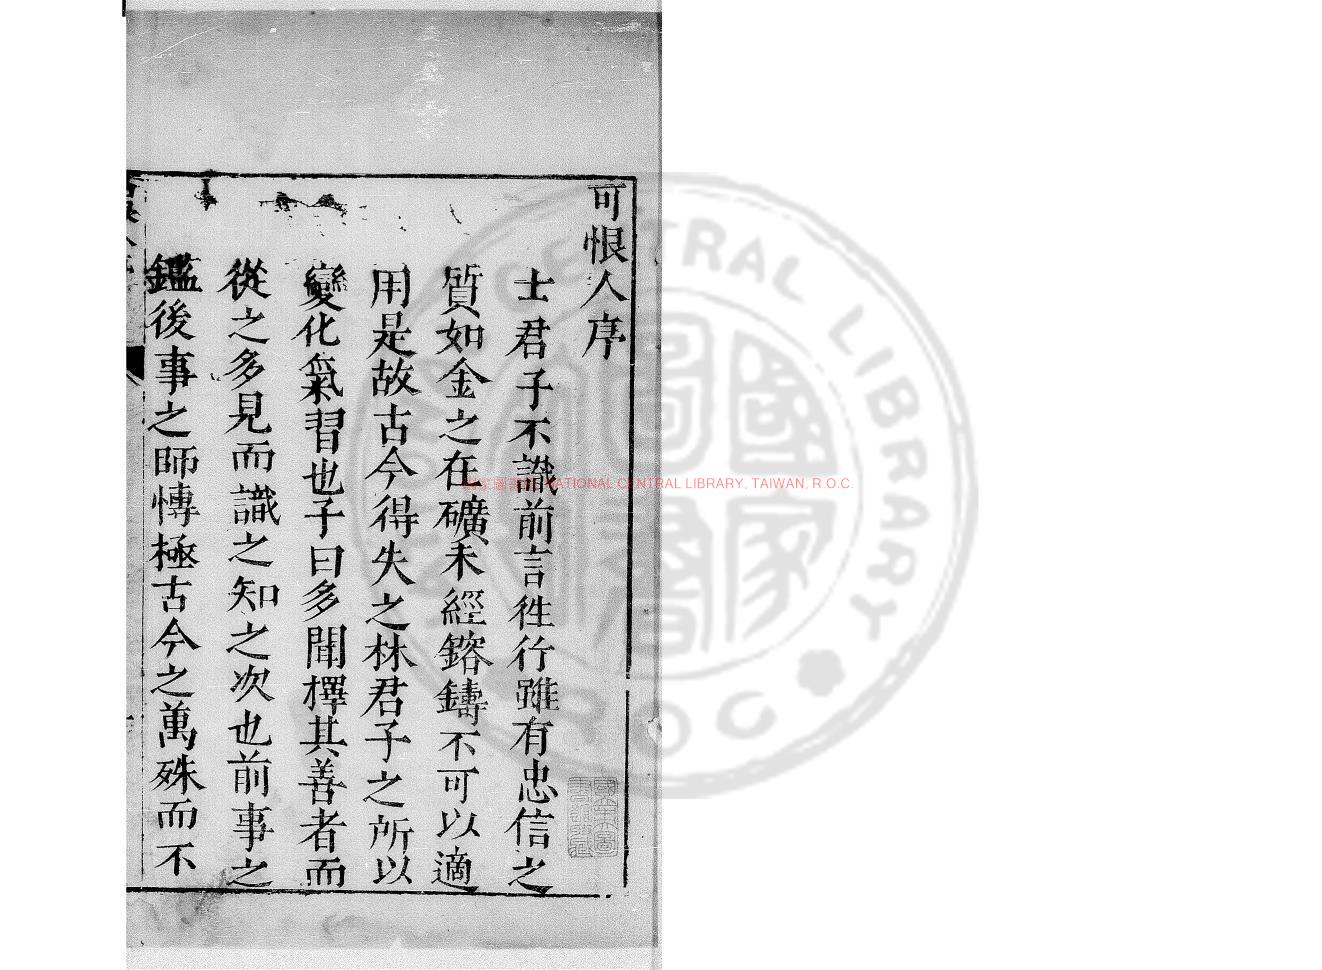 可恨人序
士君子不識前言徃行雖有忠信之
質如金之在礦未經鎔鑄不可以適
用是故古今得失之林君子之所以
變化氣習也子曰多聞擇其善者而
從之多見而識之知之次也前事之
鑑後事之師慱極古今之萬殊而不
NATIONAL CENTRAL LIBRARY, TAIWAN, R.O.C.
CENTRAL LIBRARY
ROC